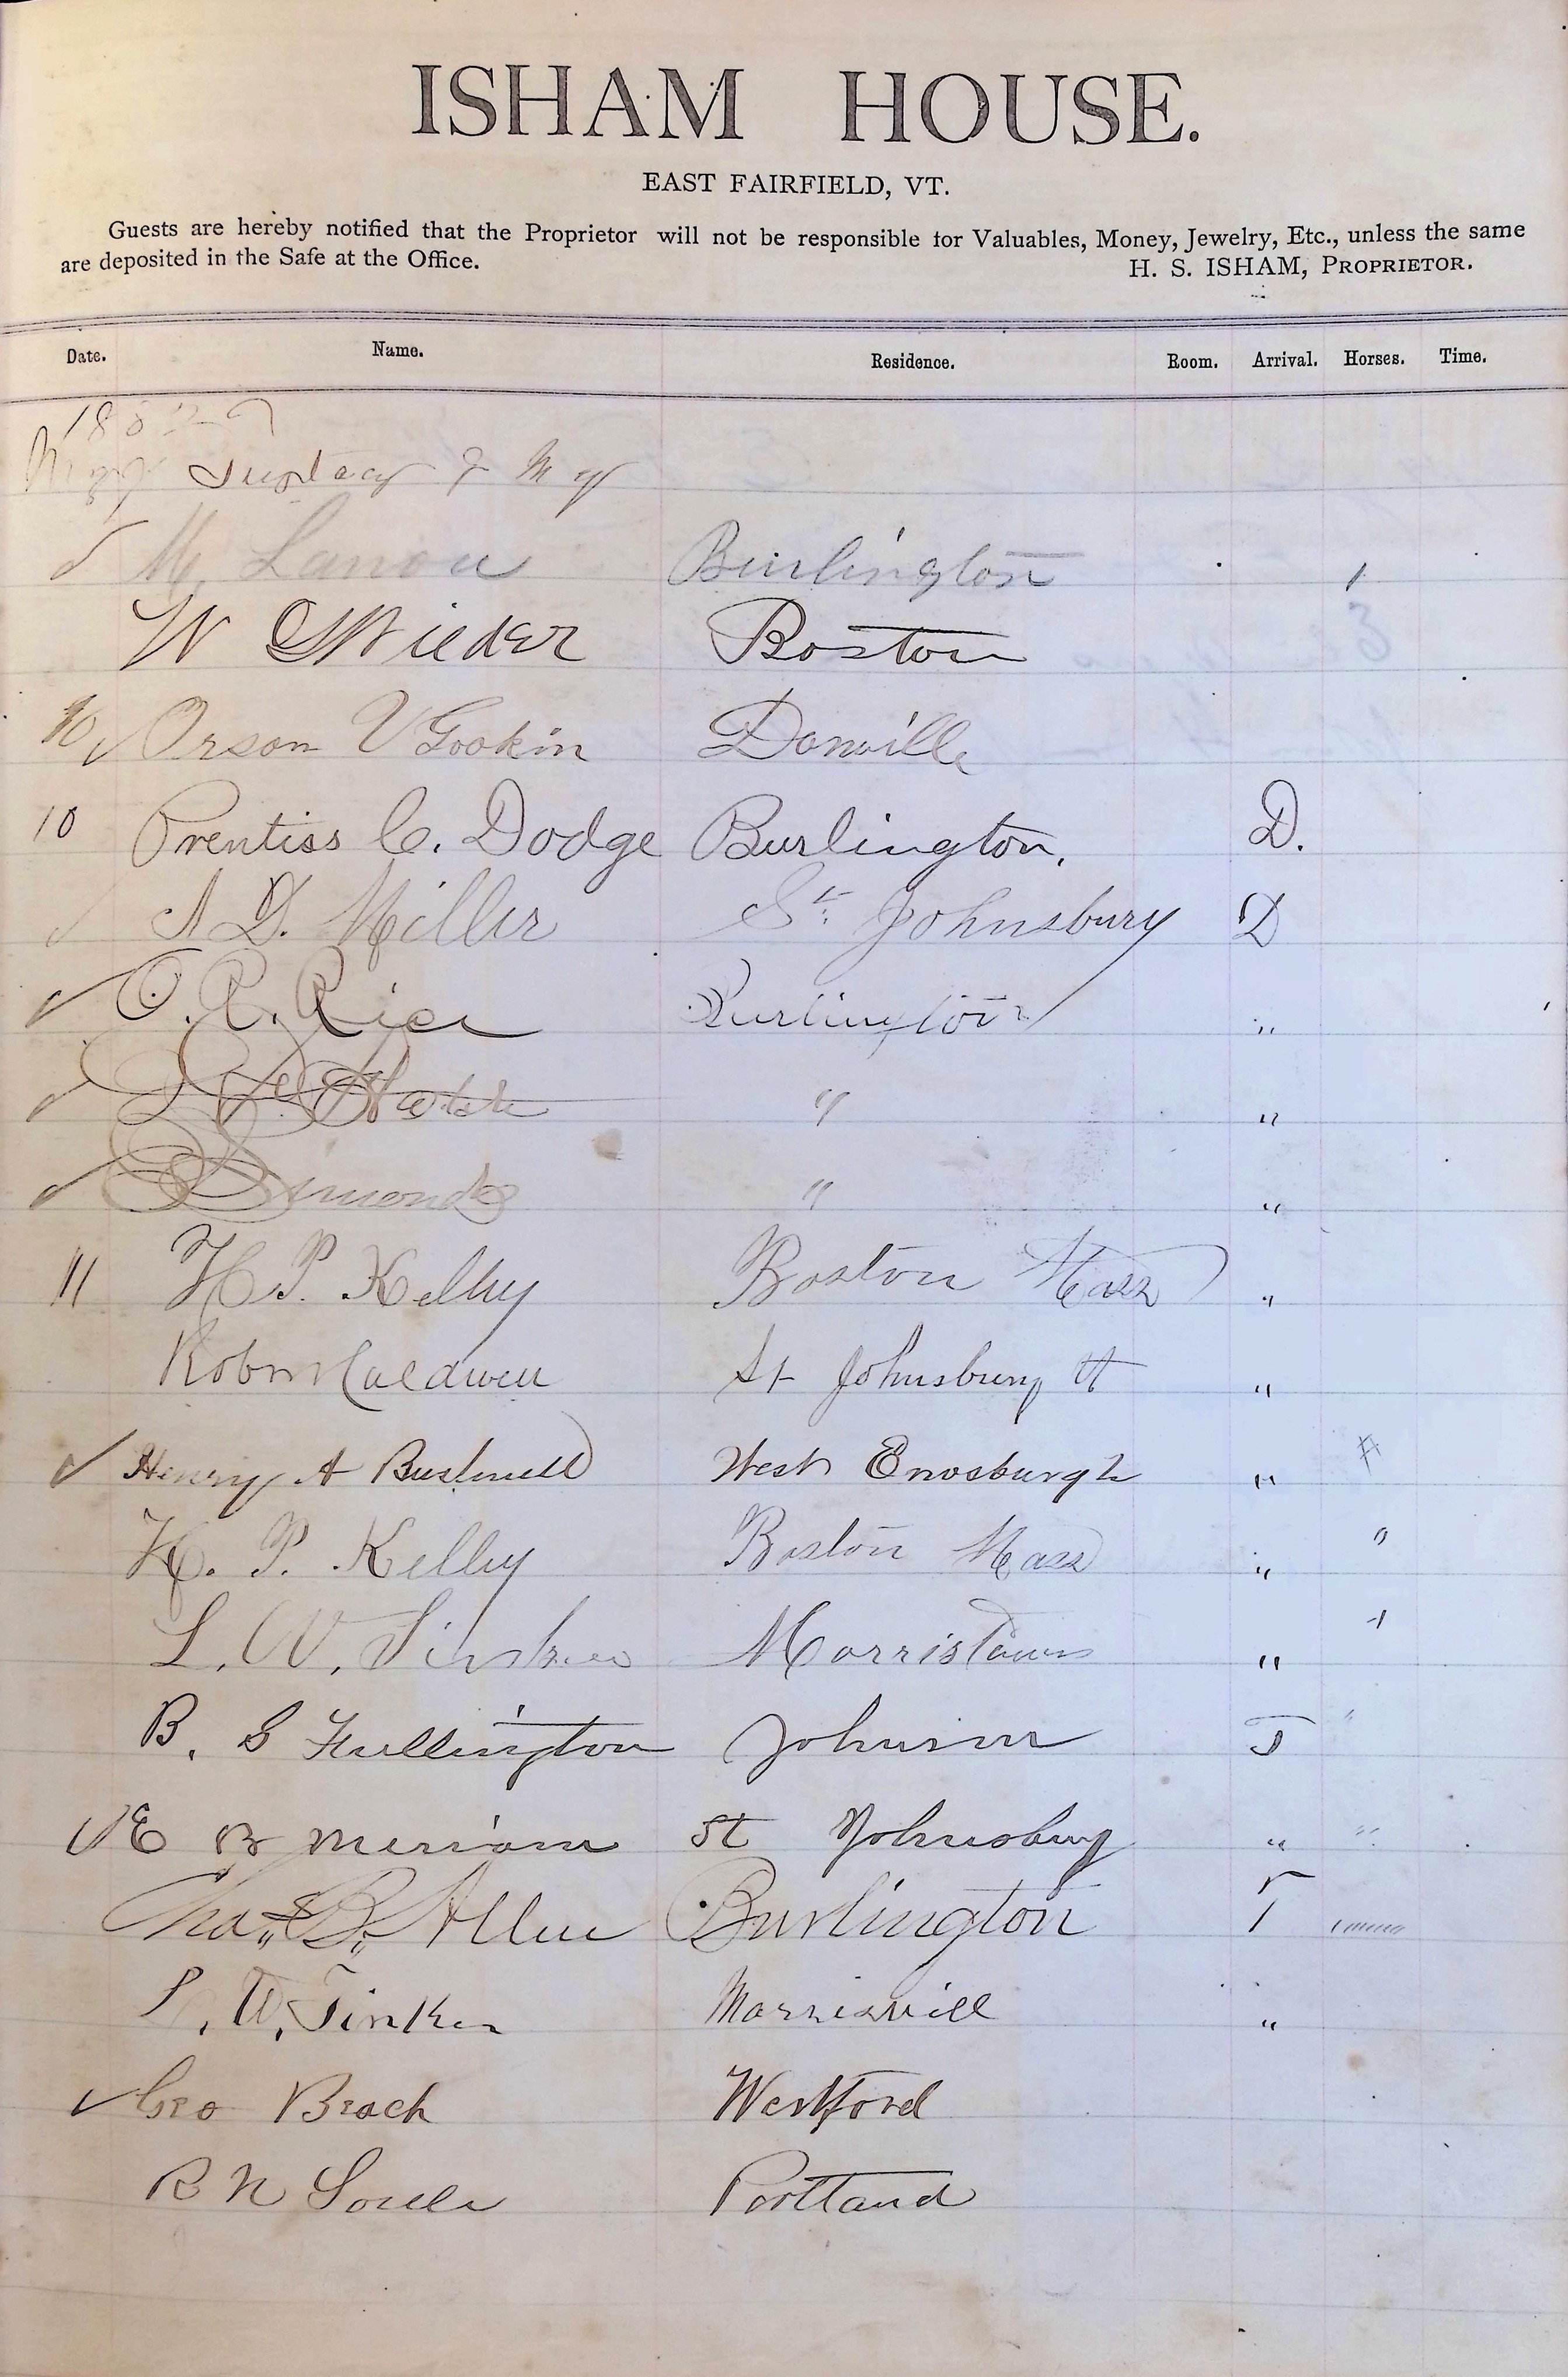 ISHAM HOUSE.
EAST FAIRFIELD, VT.
Guests are hereby notified that the Proprietor will not be responsible for Valuables, Money, Jewelry, Etc., unless the same
are deposited in the Safe at the Office. H. S. ISHAM, PROPRIETOR.
Date. Name. Residence. Room. Arrival. Horses. Time.
M. Lanou Burlington 1
W Wieder Boston
10 ✓ Orson V Gookin Danville
10 Prentiss C. Dodge Burlington, D.
✓ A D. Miller St. Johnsbury D
✓ O. R. Rice Burlington "
✓ Hatch " "
✓ Simonds " "
11 H. P. Kelley Boston Mass "
Caldwell St Johnsbury Vt "
✓ Henry A Bushnell West Enosburgh "
H. P. Kelley Boston Mass " "
L. W. Morristown " 1
B. S Fullington Johnson T "
✓ E B Merriam St Johnsbury " "
Chas. B. Allen Burlington T
L. W. Tinker Morrisvill "
✓ Geo Beach Westford
R N Soule Portland